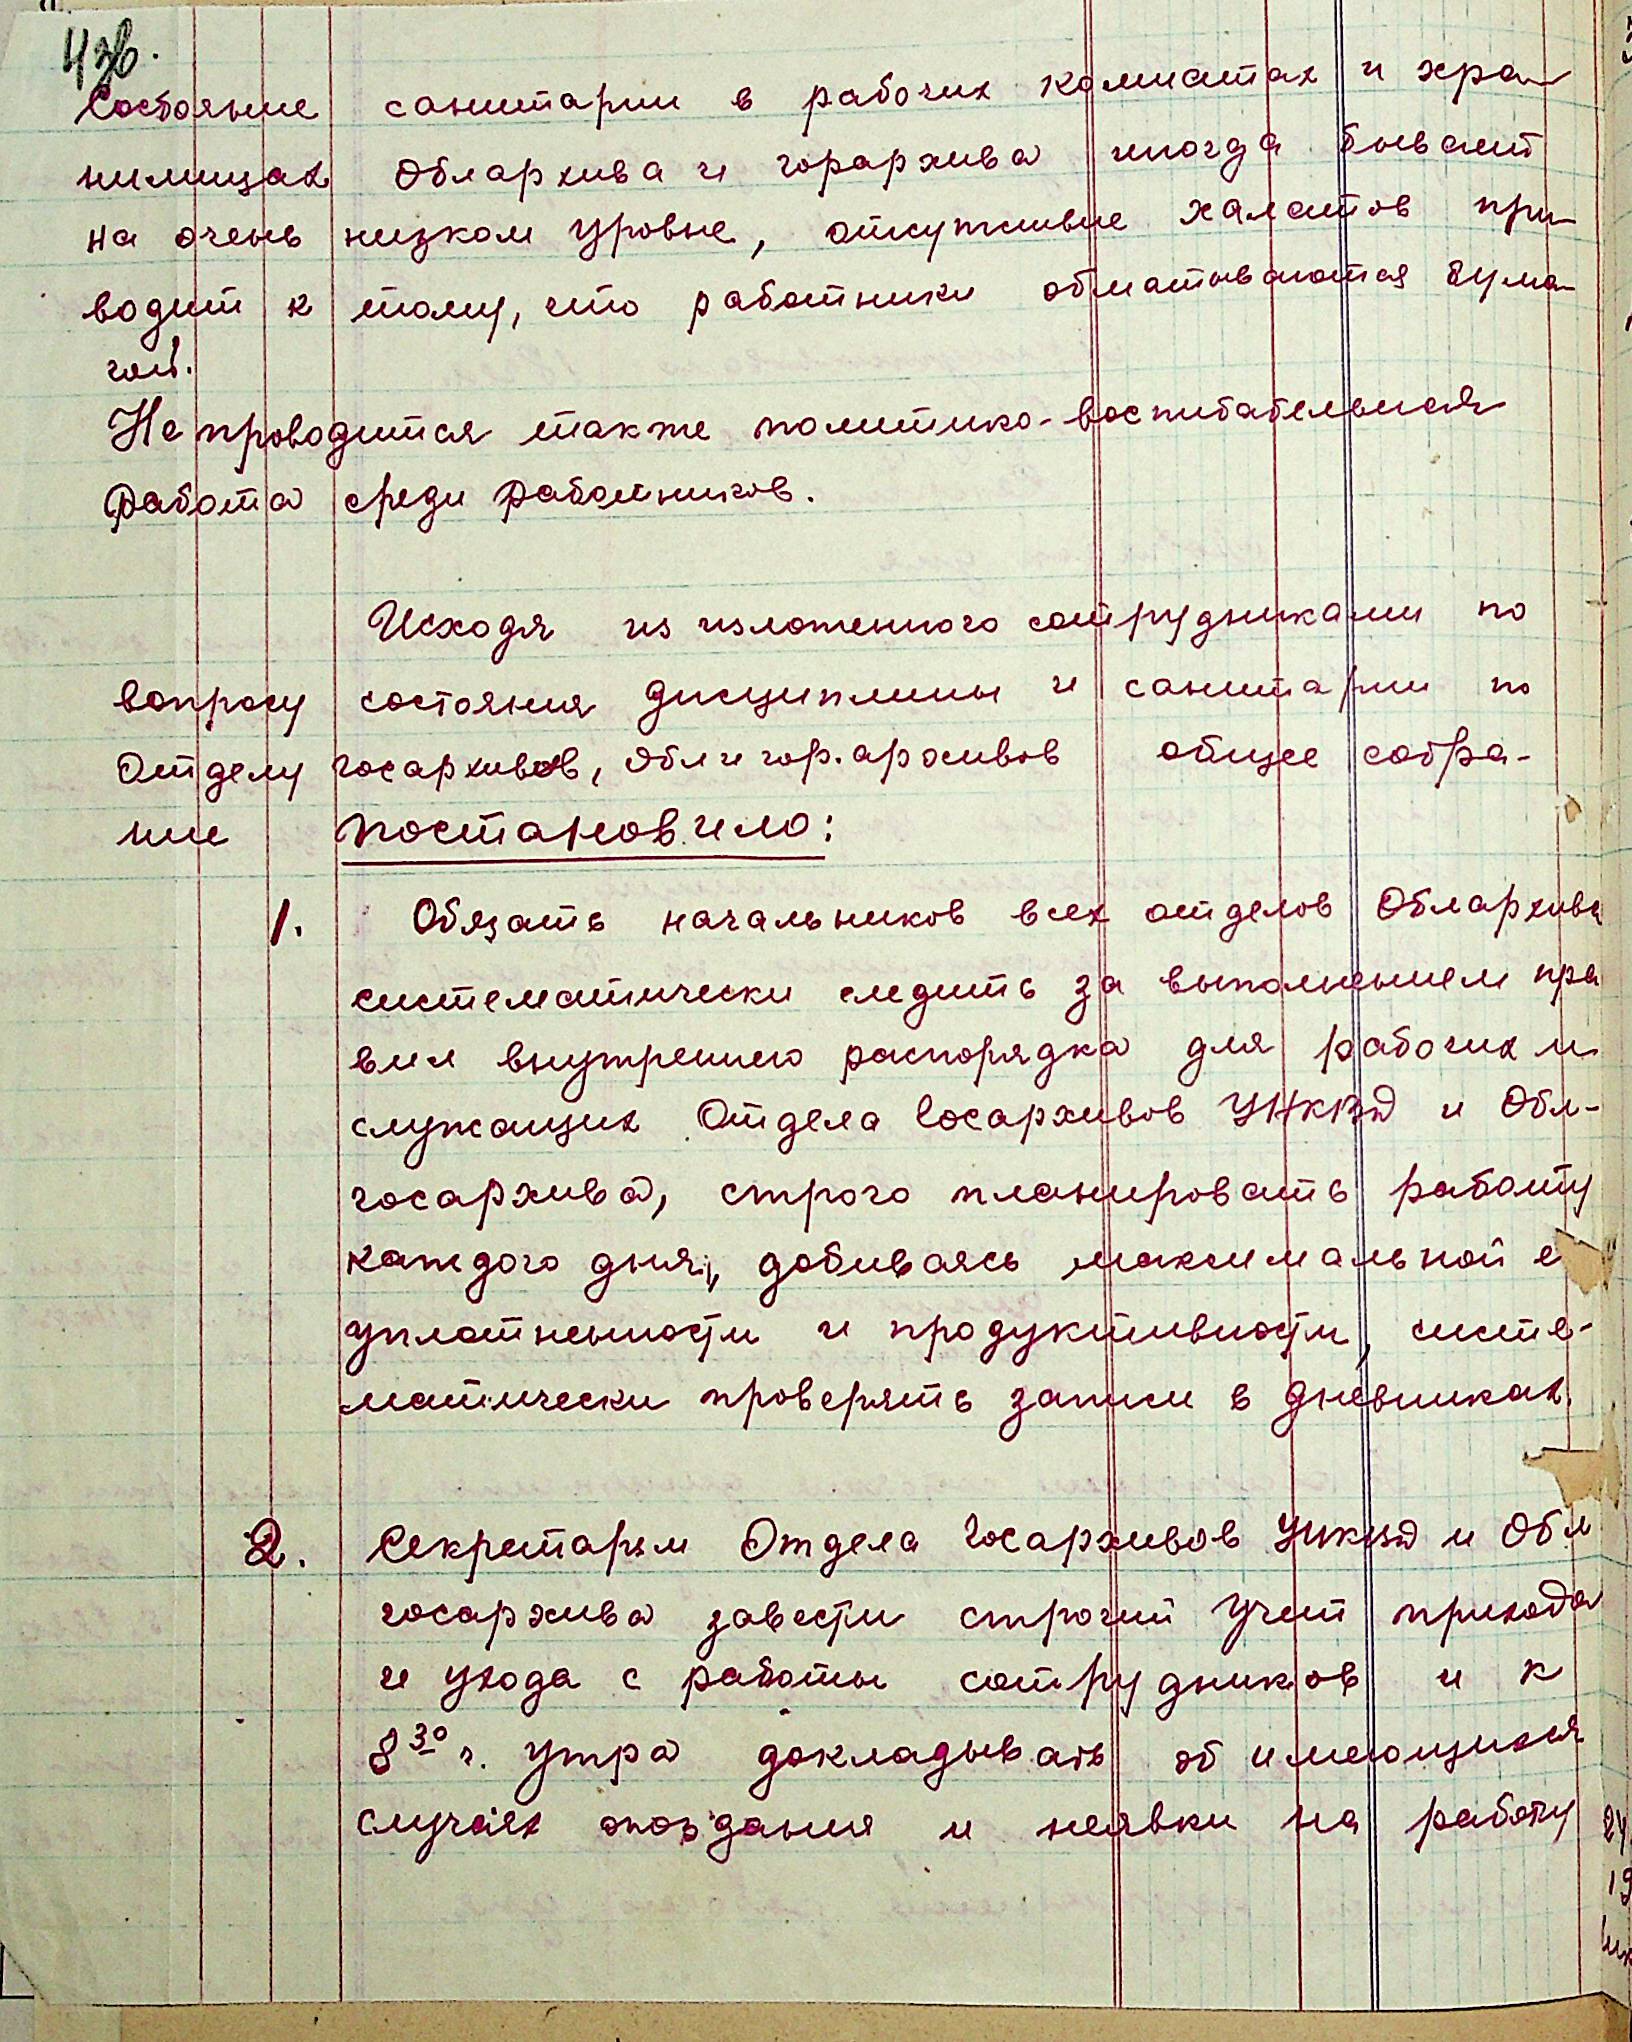 43в.
Состояние санитарии в рабочих комнатах и хра-
нилищах Облархива и горархива иногда бывает
на очень низком уровне, отсутствие халатов при-
водит к тому, что работники обматываются бума-
гой.
Не проводится также политико-воспитательная
работа среди работников.
Исходя из изложенного сотрудниками по
вопросу состояния дисциплины и санитарии по
Отделу госархивов, обл и гор. архивов общее собра-
ние постановило:
1. Обязать начальников всех отделов Облархива
систематически следить за выполнением пра
вил внутреннего распорядка для рабочих и
служащих Отдела Госархивов УНКВД и Обл-
госархива, строго планировать работу
каждого дня, добиваясь максимальной е
уплотненности и продуктивности, систе-
матически проверять записи в дневниках.
2. Секретарям Отдела Госархивов УНКВД и Обл
госархива завести строгий учет прихода
и ухода с работы сотрудников и к
8 30 ч. утра докладывать об имеющихся
случаях опоздания и неявки на работу